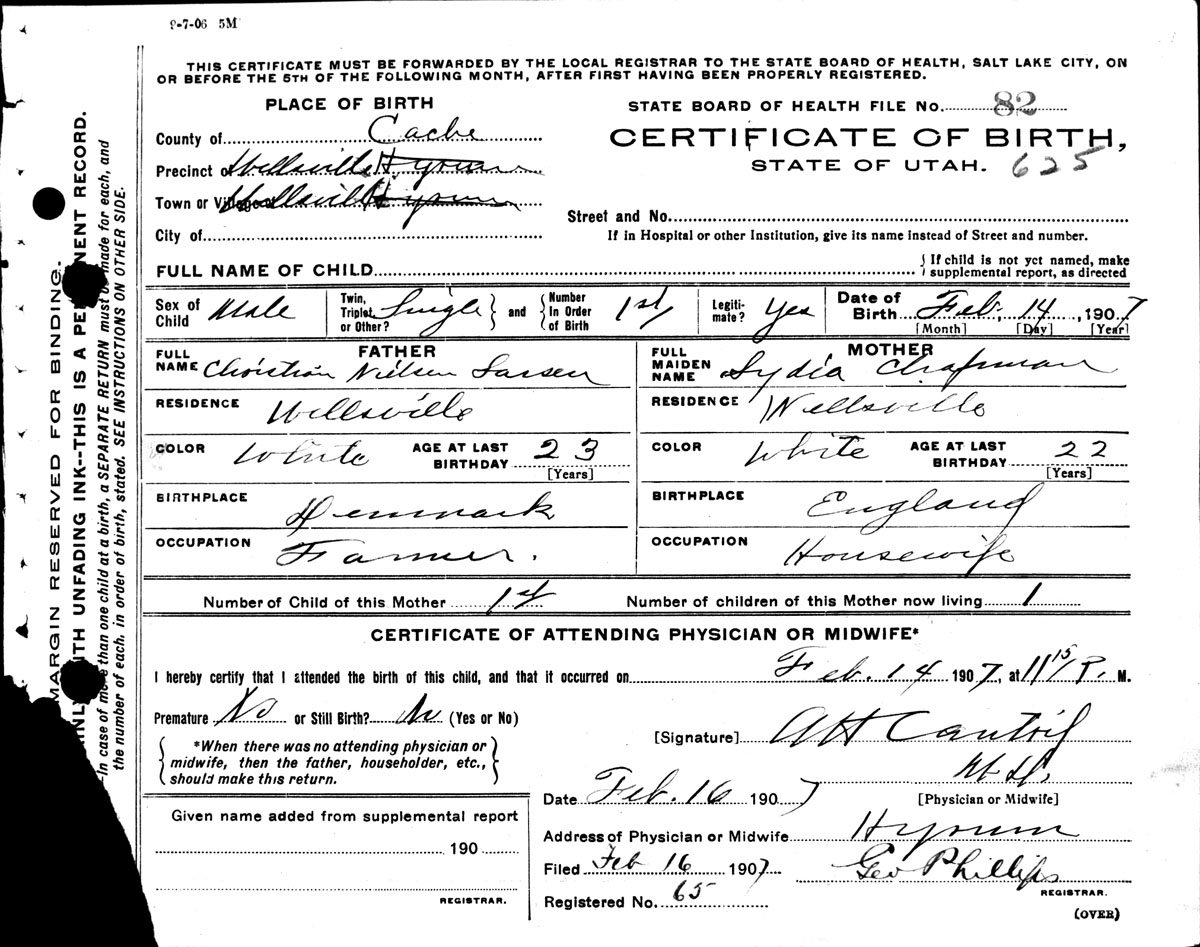 9-7-06 5M
THIS CERTIFICATE MUST BE FORWARDED BY THE LOCAL REGISTRAR TO THE STATE BOARD OF HEALTH, SALT LAKE CITY, ON
OR BEFORE THE 5TH OF THE FOLLOWING MONTH, AFTER FIRST HAVING BEEN PROPERLY REGISTERED.
PLACE OF BIRTH
County of Cache
Precinct of Wellsville Hyrum
Town or Village of Wellsville Hyrum
City of
STATE BOARD OF HEALTH FILE No. 82
CERTIFICATE OF BIRTH,
STATE OF UTAH. 625
Street and No.
If in Hospital or other Institution, give its name instead of Street and number.
FULL NAME OF CHILD
{ If child is not yet named, make
supplemental report, as directed
Sex of Child Male
Twin, Triplet, or Other? Single } and { Number In Order of Birth 1st
Legitimate? Yes
Date of Birth Feb. 14, 1907
[Month] [Day] [Year]
FATHER
FULL NAME Christian Nielsen Larsen
RESIDENCE Wellsville
COLOR White AGE AT LAST BIRTHDAY 23
[Years]
BIRTHPLACE Denmark
OCCUPATION Farmer.
MOTHER
FULL MAIDEN NAME Lydia Chapman
RESIDENCE Wellsville
COLOR White AGE AT LAST BIRTHDAY 22
[Years]
BIRTHPLACE England
OCCUPATION Housewife
Number of Child of this Mother 1st Number of children of this Mother now living 1
CERTIFICATE OF ATTENDING PHYSICIAN OR MIDWIFE*
I hereby certify that I attended the birth of this child, and that it occurred on Feb. 14 1907, at 11 15 P. M.
Premature No or Still Birth? No (Yes or No)
{ *When there was no attending physician or
midwife, then the father, householder, etc.,
should make this return. }
[Signature] M.D.
[Physician or Midwife]
Date Feb. 16 1907
Address of Physician or Midwife Hyrum
Filed Feb 16 1907 Geo Phillips
REGISTRAR.
Registered No. 65
(OVER)
Given name added from supplemental report
190
REGISTRAR.
MARGIN RESERVED FOR BINDING.
NLY WITH UNFADING INK--THIS IS A PERMANENT RECORD.
In case of more than one child at a birth, a SEPARATE RETURN must be made for each, and
the number of each, in order of birth, stated. SEE INSTRUCTIONS ON OTHER SIDE.